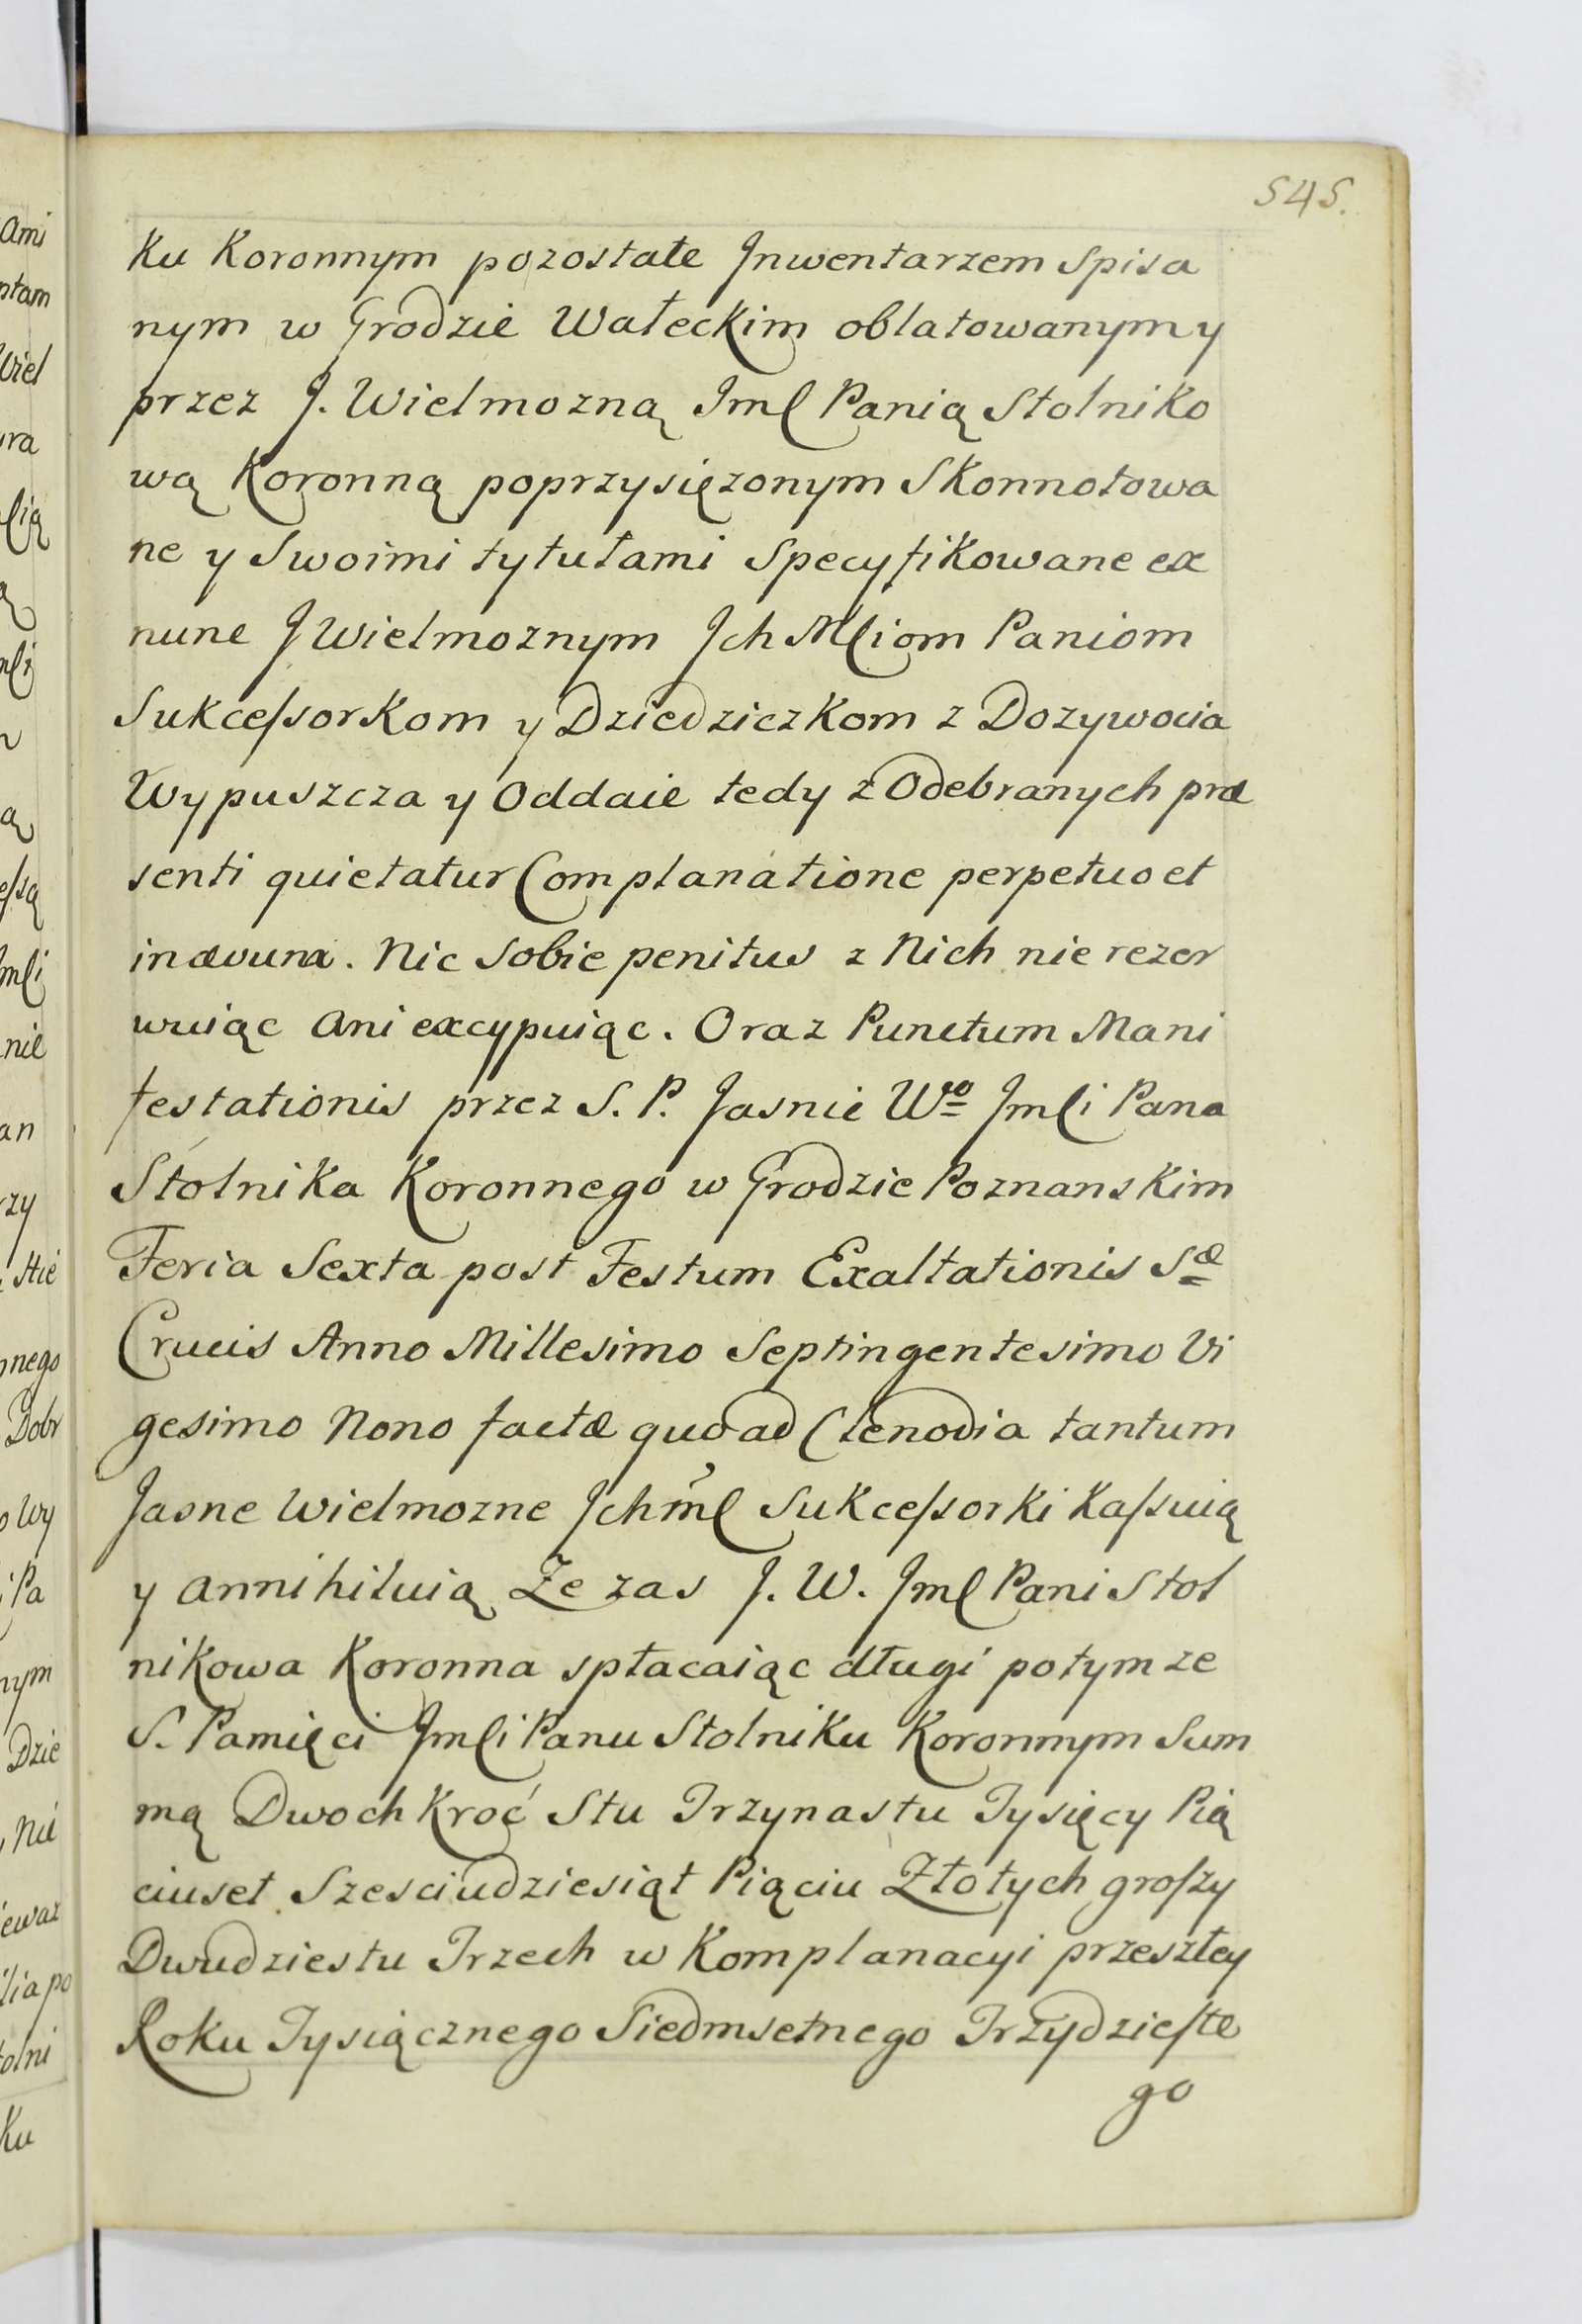 545.
ku Koronnym pozostałe Jnwentarzem Spisa
nym w Grodzie Wałeckim oblatowanym y
przez J. Wielmozną Jmſ Panią Stolniko
wą Koronną poprzysięzonym Skonnotowa
ne y Swoimi tytułami Specyfikowane ex
nunc J Wielmoznym Jch Mſciom Paniom
Sukceſsorkom y Dziedziczkom z Dozywocia
Wypuszcza y Oddaie tedy z Odebranych præ
senti quietatur Complanatione perpetuo et
in ævum. Nic Sobie penitus z Nich nie rezer
wuiąc Ani excypuiąc. Oraz Punctum Mani
festationis przez S. P. Jasnie Wgo Jmſci Pana
Stolnika Koronnego w Grodzie Poznanskim
Feria Sexta post Festum Exaltationis Sæ
Crucis Anno Millesimo Septingentesimo Vi
gesimo Nono factæ quo ad Clenodia tantum
Jasne Wielmozne Jchmſ Sukceſsorki Kaſsuią
y Annihiluią Ze zas J. W. Jmſ Pani Stol
nikowa Koronna spłacaiąc długi po tymze
S. Pamięci Jmſci Panu Stolniku Koronnym Sum
mą Dwoch Kroć Stu Trzynastu Tysięcy Pią
ciuset Szesciudziesiąt Piąciu Złotych groſzy
Dwudziestu Trzech w Komplanacyi przeszłey
Roku Tysiącznego Siedmsetnego Trzydzieſte
go